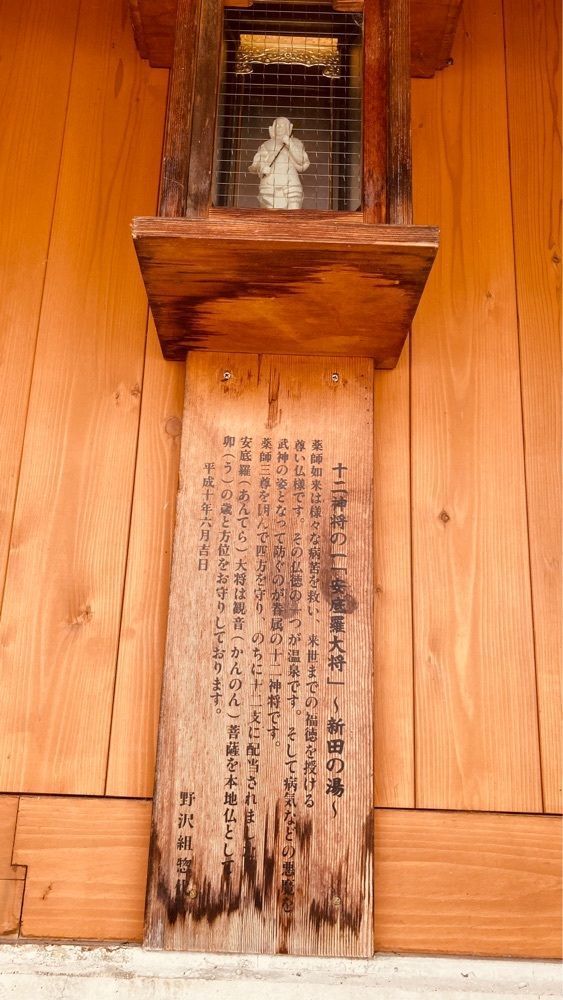 十二神将の一「安底羅大将」～新田の湯～
薬師如来は様々な病苦を救い、来世までの福徳を授ける
尊い仏様です。その仏徳の一つが温泉です。そして病気などの悪魔を
武神の姿となって防ぐのが眷属の十二神将です。
薬師三尊を囲んで四方を守り、のちに十二支に配当されまし
安底羅（あんてら）大将は観音（かんのん）菩薩を本地仏として
卯（う）の歳と方位をお守りしております。
平成十年六月吉日
野沢組惣代